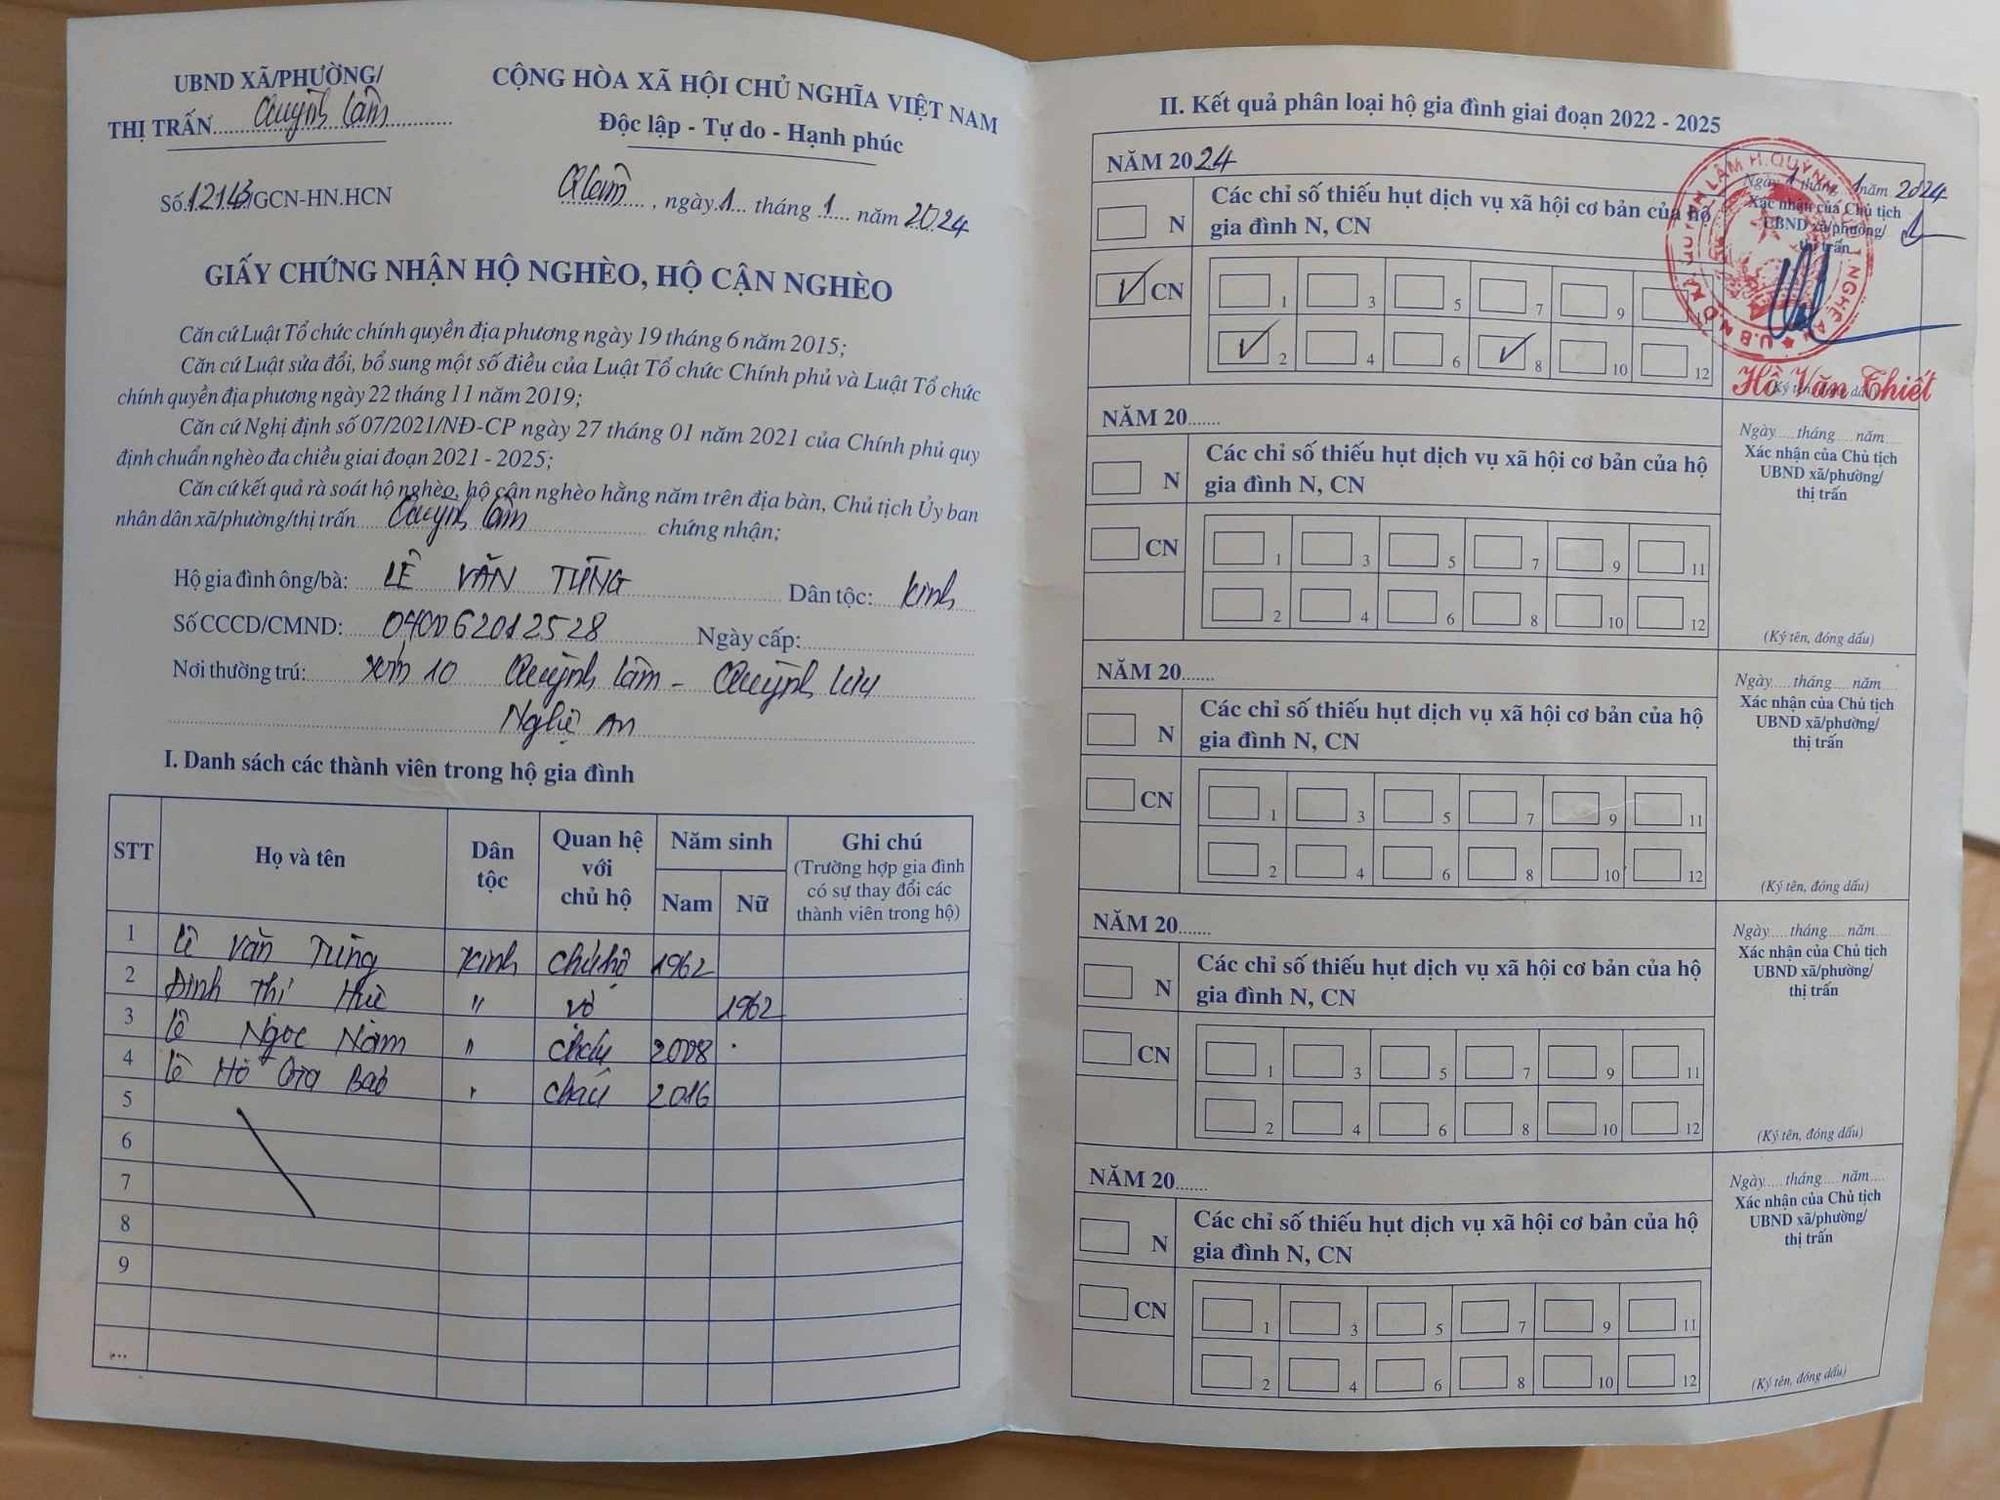 UBND XÃ/PHƯỜNG/
THỊ TRẤN Quỳnh Lâm
CỘNG HÒA XÃ HỘI CHỦ NGHĨA VIỆT NAM
Độc lập - Tự do - Hạnh phúc
Số: /GCN-HN.HCN
Q Lâm, ngày 1 tháng 1 năm 2024
GIẤY CHỨNG NHẬN HỘ NGHÈO, HỘ CẬN NGHÈO
Căn cứ Luật Tổ chức chính quyền địa phương ngày 19 tháng 6 năm 2015;
Căn cứ Luật sửa đổi, bổ sung một số điều của Luật Tổ chức Chính phủ và Luật Tổ chức
chính quyền địa phương ngày 22 tháng 11 năm 2019;
Căn cứ Nghị định số 07/2021/NĐ-CP ngày 27 tháng 01 năm 2021 của Chính phủ quy
định chuẩn nghèo đa chiều giai đoạn 2021 - 2025;
Căn cứ kết quả rà soát hộ nghèo, hộ cận nghèo hằng năm trên địa bàn, Chủ tịch Ủy ban
nhân dân xã/phường/thị trấn Quỳnh Lâm chứng nhận;
Hộ gia đình ông/bà: LÊ VĂN TÙNG Dân tộc: Kinh
Số CCCD/CMND: 040062012528 Ngày cấp:
Nơi thường trú: xóm 10 Quỳnh Lâm - Quỳnh Lưu
Nghệ An
I. Danh sách các thành viên trong hộ gia đình
STT Họ và tên Dân tộc Quan hệ với chủ hộ Năm sinh Nam Nữ Ghi chú (Trường hợp gia đình có sự thay đổi các thành viên trong hộ)
1 Lê Văn Tùng Kinh chủ hộ 1962
2 Đinh Thị Huê " vợ 1962
3 Lê Ngọc Nam " cháu 2008
4 Lê Hồ Gia Bảo " cháu 2016
5
6
7
8
9
...
II. Kết quả phân loại hộ gia đình giai đoạn 2022 - 2025
NĂM 2024
N
Các chỉ số thiếu hụt dịch vụ xã hội cơ bản của hộ
gia đình N, CN
✓ CN
1 3 5 7 9 11
✓ 2 4 6 ✓ 8 10 12
Ngày 1 tháng 1 năm 2024
Xác nhận của Chủ tịch
UBND xã/phường/
thị trấn
(Ký tên, đóng dấu)
Hồ Văn Thiết
NĂM 20.......
N
Các chỉ số thiếu hụt dịch vụ xã hội cơ bản của hộ
gia đình N, CN
CN
1 3 5 7 9 11
2 4 6 8 10 12
Ngày.... tháng.... năm....
Xác nhận của Chủ tịch
UBND xã/phường/
thị trấn
(Ký tên, đóng dấu)
NĂM 20.......
N
Các chỉ số thiếu hụt dịch vụ xã hội cơ bản của hộ
gia đình N, CN
CN
1 3 5 7 9 11
2 4 6 8 10 12
Ngày.... tháng.... năm....
Xác nhận của Chủ tịch
UBND xã/phường/
thị trấn
(Ký tên, đóng dấu)
NĂM 20.......
N
Các chỉ số thiếu hụt dịch vụ xã hội cơ bản của hộ
gia đình N, CN
CN
1 3 5 7 9 11
2 4 6 8 10 12
Ngày.... tháng.... năm....
Xác nhận của Chủ tịch
UBND xã/phường/
thị trấn
(Ký tên, đóng dấu)
NĂM 20.......
N
Các chỉ số thiếu hụt dịch vụ xã hội cơ bản của hộ
gia đình N, CN
CN
1 3 5 7 9 11
2 4 6 8 10 12
Ngày.... tháng.... năm....
Xác nhận của Chủ tịch
UBND xã/phường/
thị trấn
(Ký tên, đóng dấu)